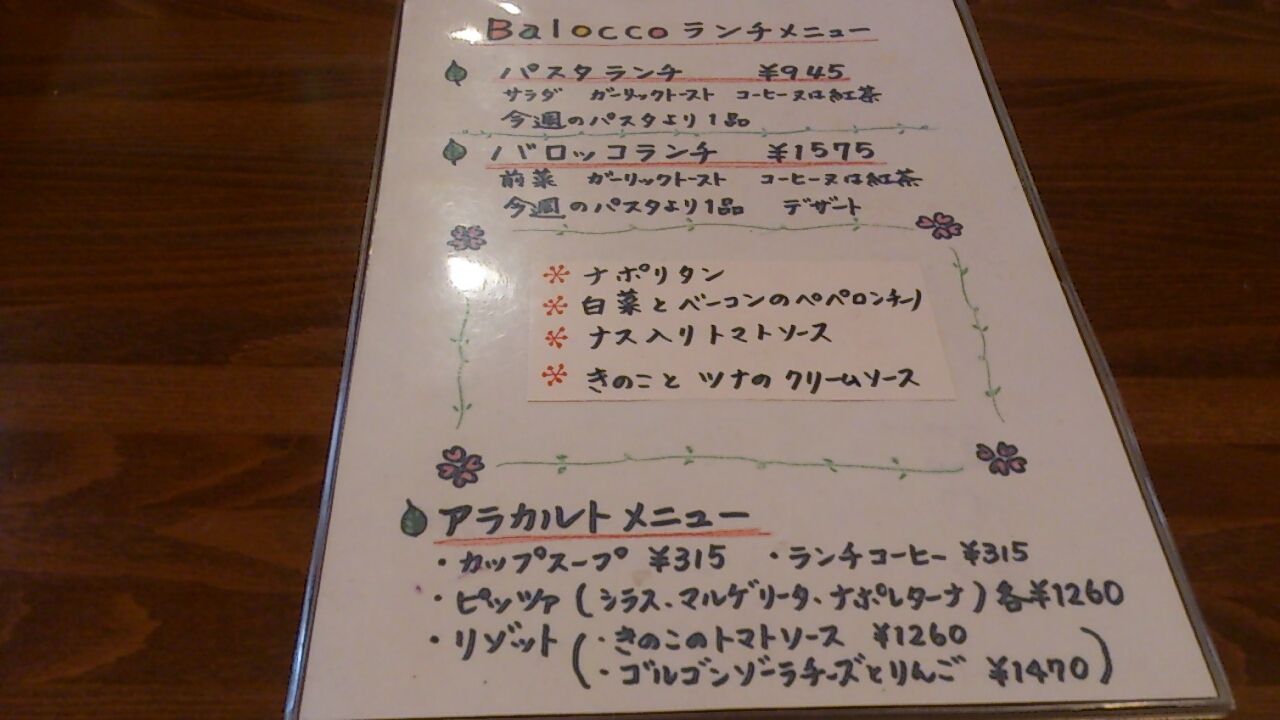 Balocco ランチメニュー
パスタランチ ¥945
サラダ ガーリックトースト コーヒー又は紅茶
今週のパスタより1品
バロッコランチ ¥1575
前菜 ガーリックトースト コーヒー又は紅茶
今週のパスタより1品 デザート
ナポリタン
白菜とベーコンのペペロンチーノ
ナス入りトマトソース
きのことツナのクリームソース
アラカルトメニュー
・カップスープ ¥315 ・ランチコーヒー ¥315
・ピッツァ(シラス、マルゲリータ、ナポレターナ)各¥1260
・リゾット(・きのこのトマトソース ¥1260
・ゴルゴンゾーラチーズとりんご ¥1470)